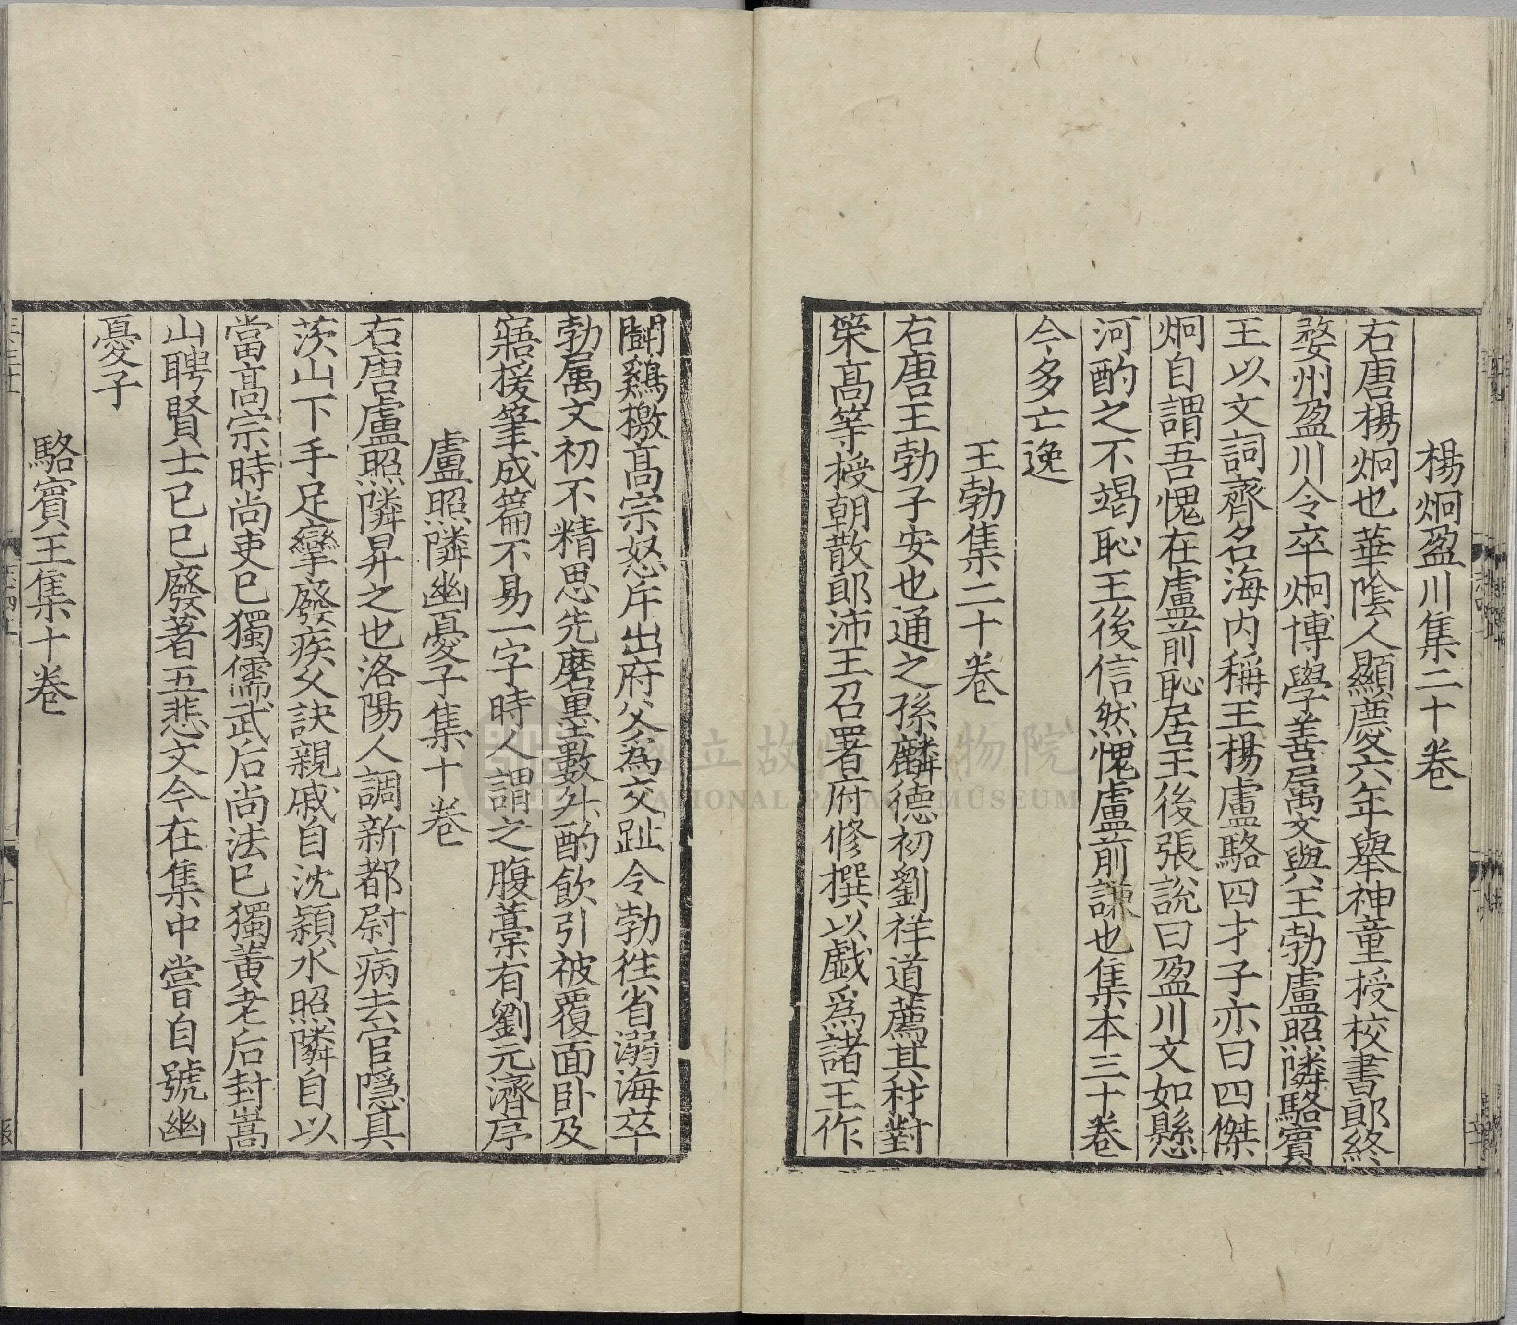 楊炯盈川集二十卷
右唐楊炯也華陰人顯慶六年舉神童授校書郎終
婺州盈川令卒炯博學善屬文與王勃盧照隣駱賓
王以文詞齊名海内稱王楊盧駱四才子亦曰四傑
炯自謂吾愧在盧前恥居王後張說曰盈川文如懸
河酌之不竭恥王後信然愧盧前謙也集本三十卷
今多亡逸
王勃集二十卷
右唐王勃子安也通之孫麟德初劉祥道薦其材對
策髙等授朝散郎沛王召署府修撰以戯爲諸王作
鬬鷄檄髙宗怒斥出府父為交趾令勃徃省溺海卒
勃属文初不精思先磨墨數升酌飲引被覆面卧及
寤援筆成篇不易一字時人謂之腹藁有劉元濟序
盧照隣幽憂子集十卷
右唐盧照隣昇之也洛陽人調新都尉病去官隱具
茨山下手足攣廢疾父訣親戚自沈潁水照隣自以
當髙宗時尚吏已獨儒武后尚法已獨黃老后封嵩
山聘賢士已已廢著五悲文今在集中嘗自號幽
憂子
駱賓王集十卷
國立故宮博物院
NATIONAL PALACE MUSEUM